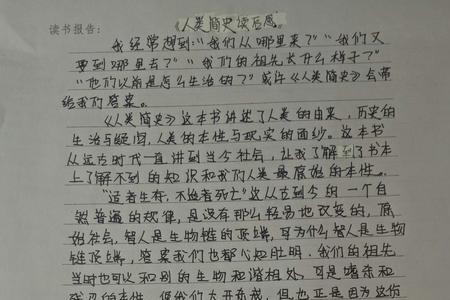 读书报告：
《人类简史》读后感。
我经常想到："我们从哪里来了""我们又
要到哪里去了""我们的祖先长什么样子了"
"他们以前是怎么生活的了"或许《人类简史》会带
给我们答案。
《人类简史》这本书讲述了人类的由来，历史的
生治与疑问，人类的本性与现实的面纱。这本书
从远古时代一直讲到当今社会，让我了解到了书本
上了解不到的知识和我们人类最原始的本性。
"适者生存，不适者死亡"这从古到今的一个自
然普遍的规律，是没有那么轻易地改变的，原
始社会，智人是生物链的顶端，可为什么智人是生物
链顶端，答案我们也都心知肚明。我们的祖先
当时也可以和别的生物和谐相处，可是嗜杀和
残忍的本性，使我们大开杀戒，但也正是因为这份